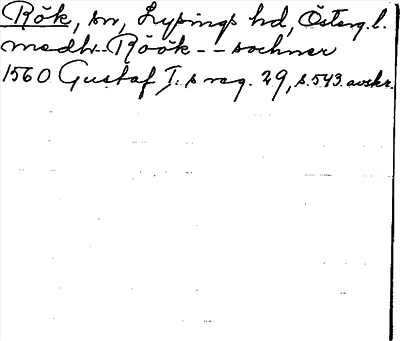 Rök, sn, Lysings hd, Österg.l.
medh Röök -- sochner
1560 Gustaf I:s reg. 29, s. 543. avskr.